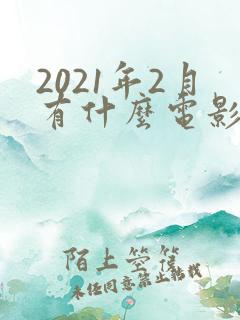 2021年2月
有什麼電影
陌上箜篌
未经同意禁止转载